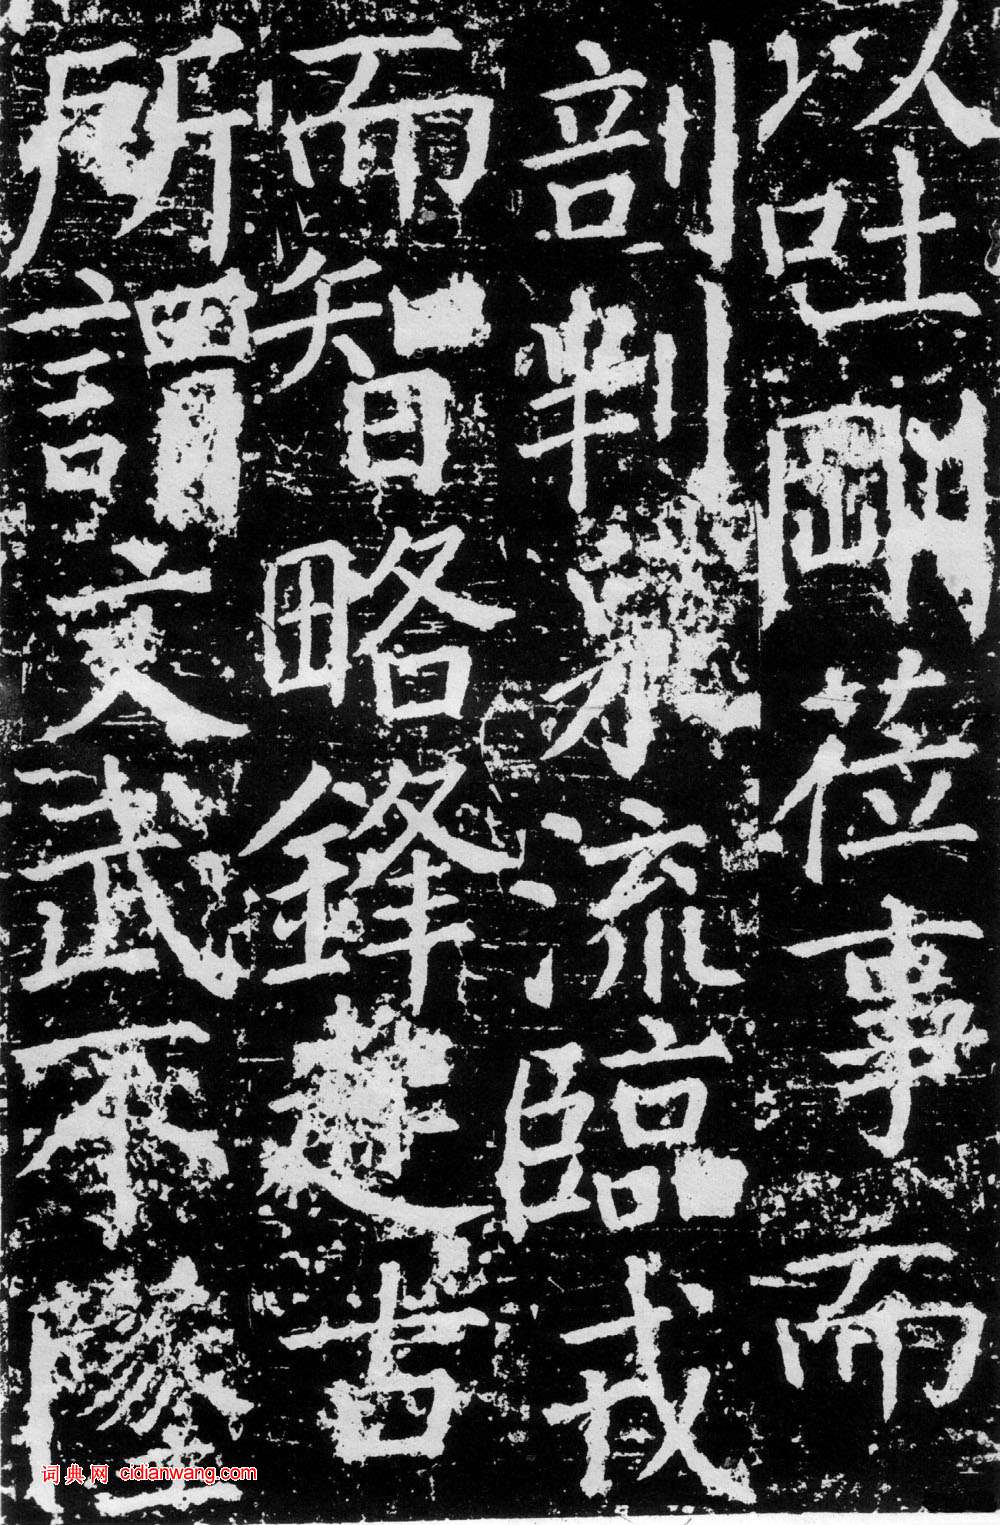 以吐剛莅事而
剖判㲋流臨戎
而智略鋒起古
所謂文武不墜
词典网 cidianwang.com